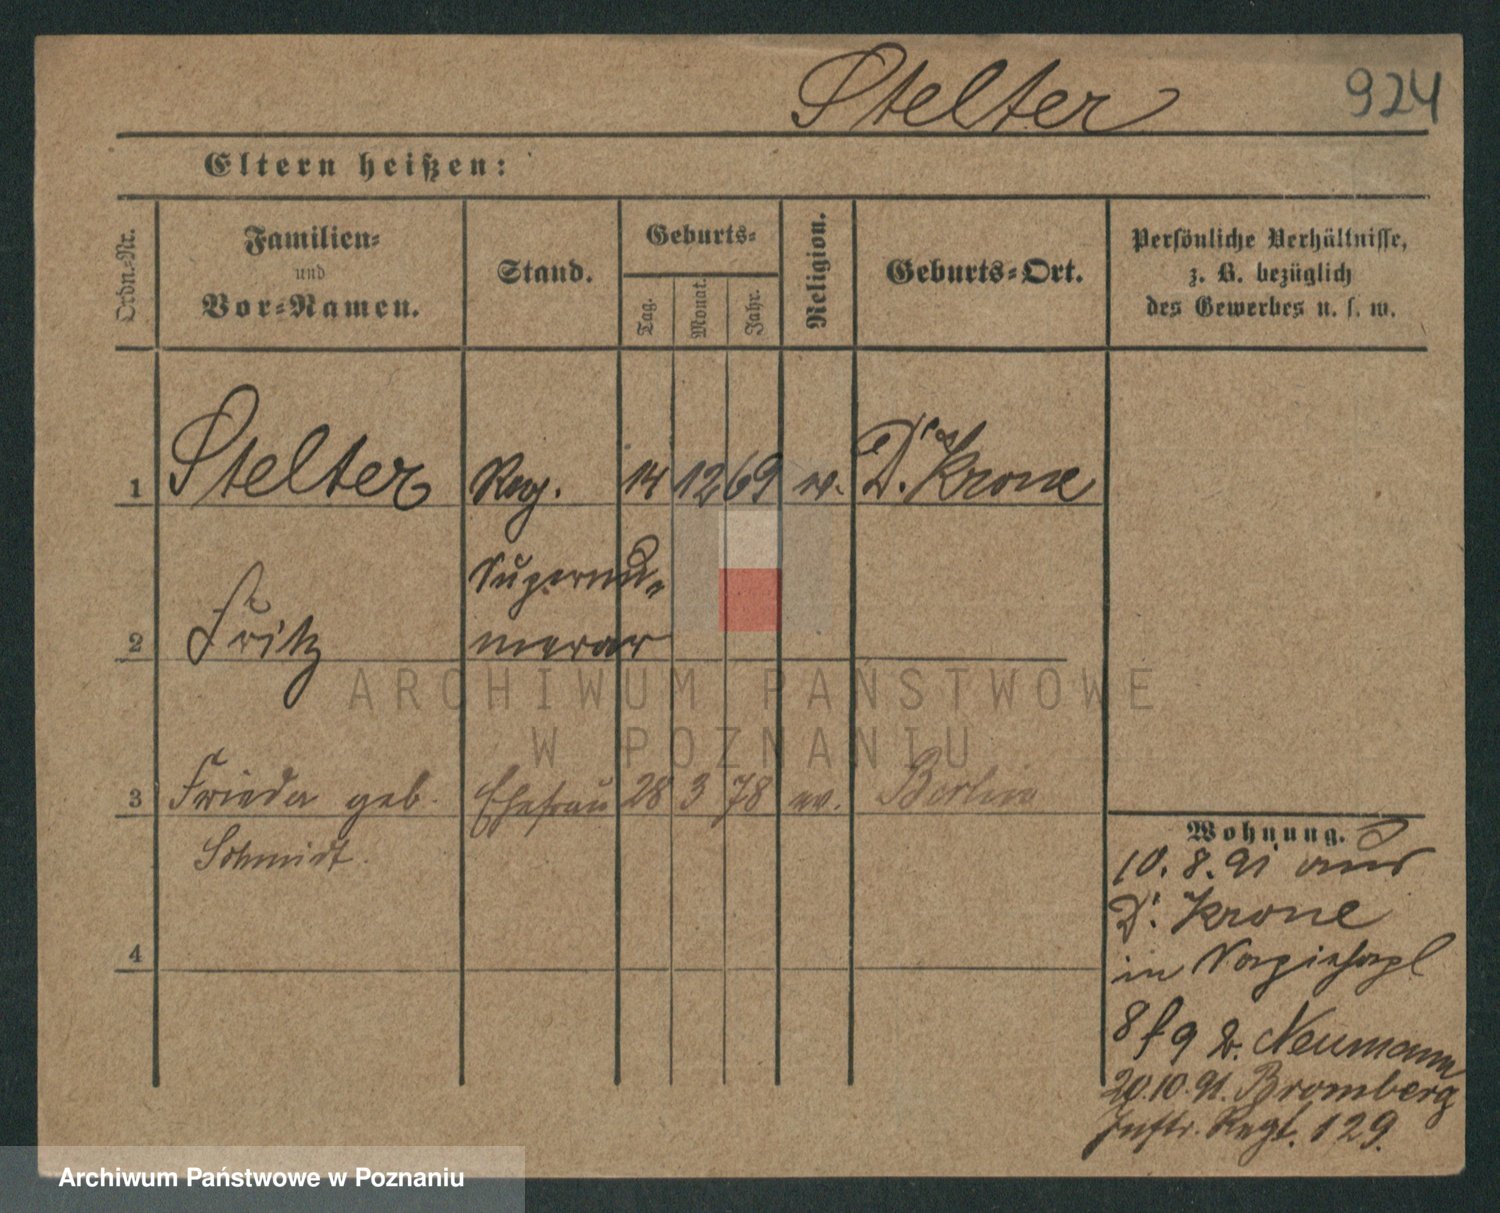 Stelter 924
Eltern heißen:
Ordn.-Nr.
Familien-
und
Vor-Namen.
Stand.
Geburts-
Tag.
Monat.
Jahr.
Religion.
Geburts-Ort.
Persönliche Verhältnisse,
z. B. bezüglich
des Gewerbes u. s. w.
1 Stelter Reg. 14 12 69 ev. D. Krone
Supernu-
2 Fritz merar
ARCHIWUM PAŃSTWOWE
W POZNANIU
3 Frieda geb. Ehefrau 28 3 78 ev. Berlin
Schmidt.
Wohnung.
10. 8. 91 aus
D. Krone
in
4
8 f 9 b. Neumann
20.10.91. Bromberg
Inftr. Regt. 129.
Archiwum Państwowe w Poznaniu